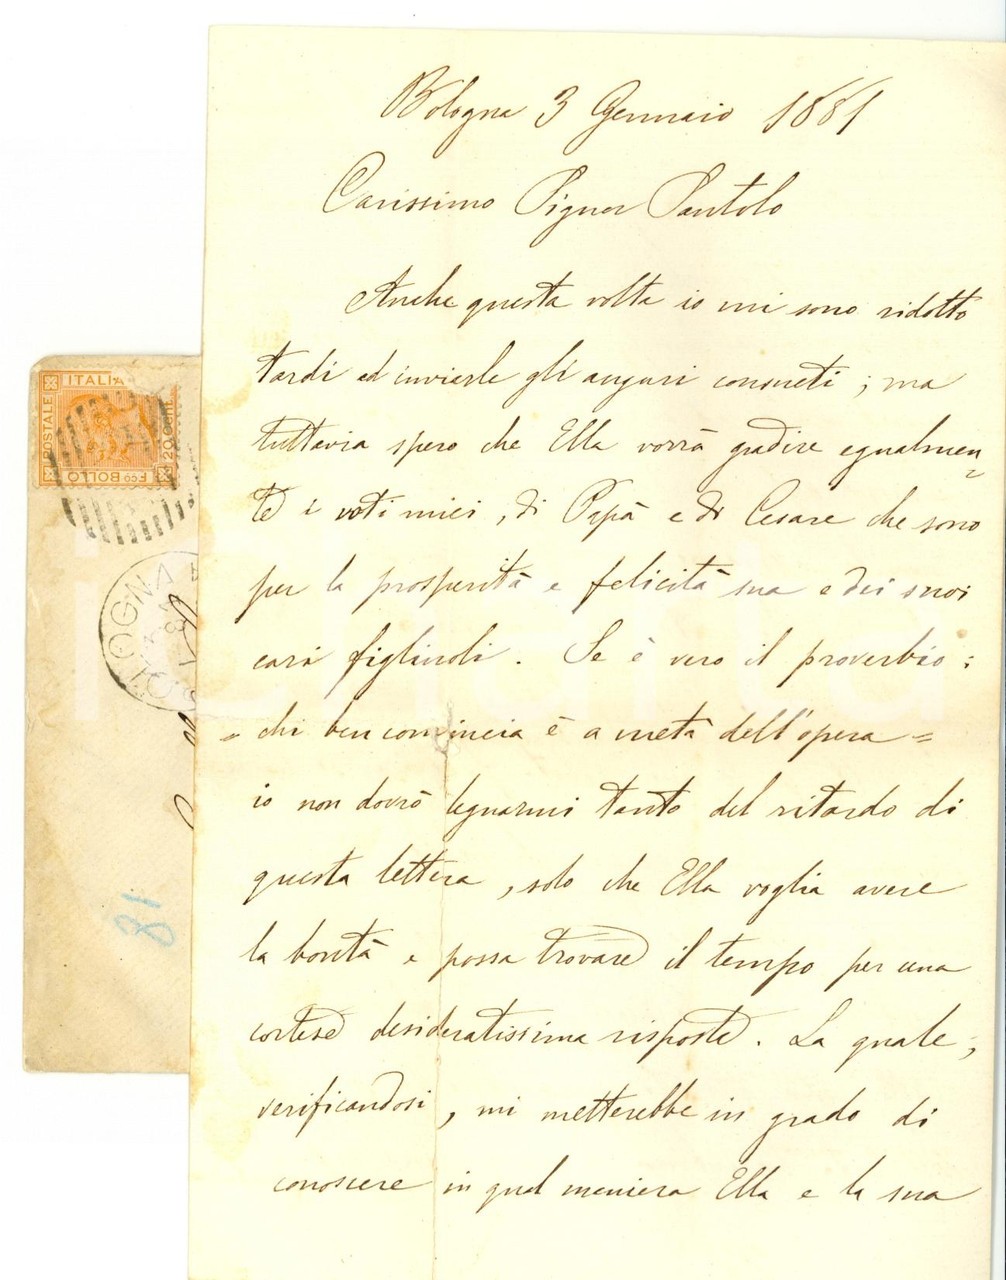 Bologna 3 Gennaio 1881
Carissimo Signor Santolo
Anche questa volta io mi sono ridotto
tardi ad inviarle gli auguri consueti ; ma
tuttavia spero che Ella vorrà gradire egualmen
te i voti miei , di Papà e di Cesare che sono
per la prosperità e felicità sua e dei suoi
cari figliuoli . Se è vero il proverbio :
= chi ben comincia è a metà dell'opera =
io non dovrò lagnarmi tanto del ritardo di
questa lettera , solo che Ella voglia avere
la bontà e possa trovare il tempo per una
cortese desideratissima risposta . La quale ,
verificandosi , mi metterebbe in grado di
conoscere in qual maniera Ella e la sua
ITALIA
POSTALE
20 CENT
FCO BOLLO
BOLOGNA
81